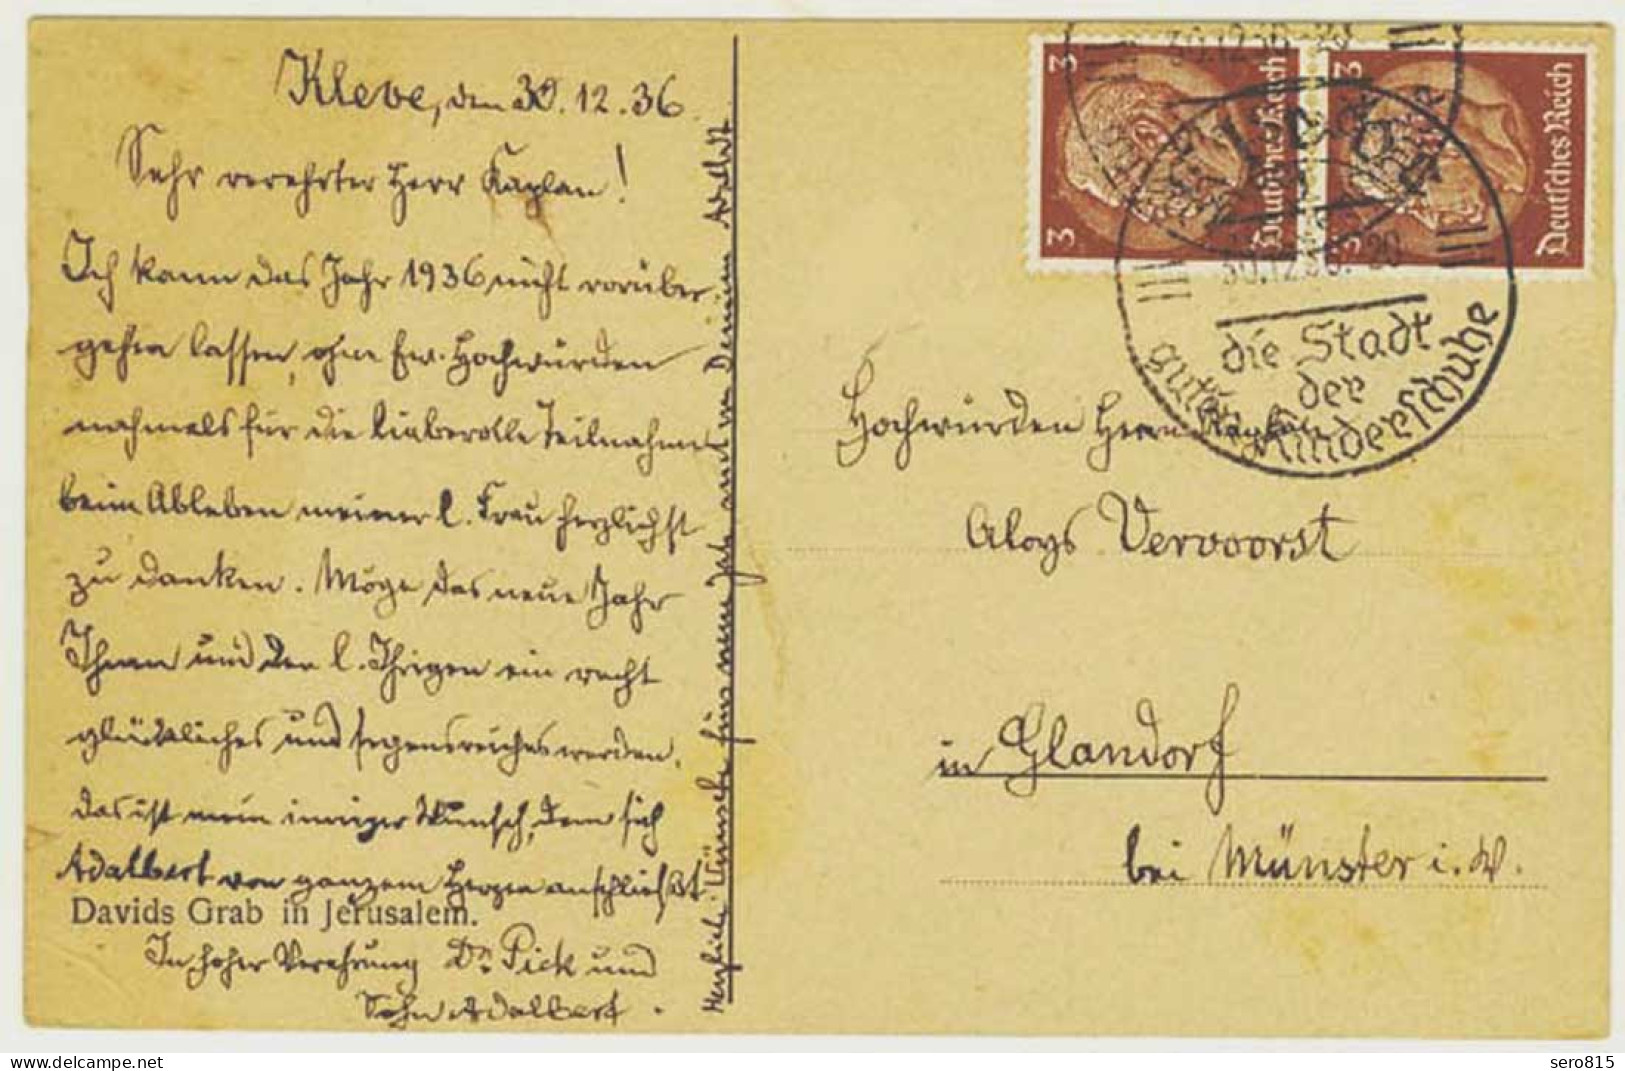 Kleve, den 30.12.36.
Sehr verehrter Herr Kaplan!
Ich kann das Jahr 1936 nicht vorüber-
gehen lassen, ohne Ew. Hochwürden
nochmals für die liebevolle Teilnahme
beim Ableben meiner l. Frau herzlichst
zu danken. Möge das neue Jahr
Ihnen und den l. Ihrigen ein recht
glückliches und segensreiches werden,
das ist mein inniger Wunsch, dem sich
Adalbert von ganzem Herzen anschließt.
Davids Grab in Jerusalem.
In hoher Verehrung Dr. Pick und
Sohn Adalbert.
Herzlich. Wünsche zum neuen Jahr von Deinem Adalbert
3
3
Deutsches Reich
3
3
Deutsches Reich
30.12.36.-20
30.12.36.-20
die Stadt
der
guten Kinderschuhe
Hochwürden Herrn Kaplan
Aloys Vervoorst
in Glandorf
bei Münster i. W.
sero815